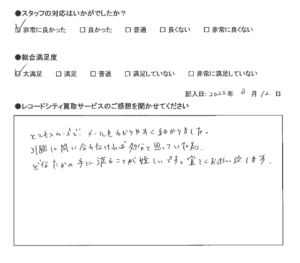 ●スタッフの対応はいかがでしたか?
☑非常に良かった □良かった □普通 □良くない □非常に良くない
●総合満足度
☑大満足 □満足 □普通 □満足していない □非常に満足していない
記入日:2025年2月12日
●レコードシティ買取サービスのご感想を聞かせてください
とてもスムーズで、メールもわかりやすく助かりました。
引越に間に合わなければ処分と思っていた為、
どなたかの手に渡ることが嬉しいです。宜しくお願い致します。